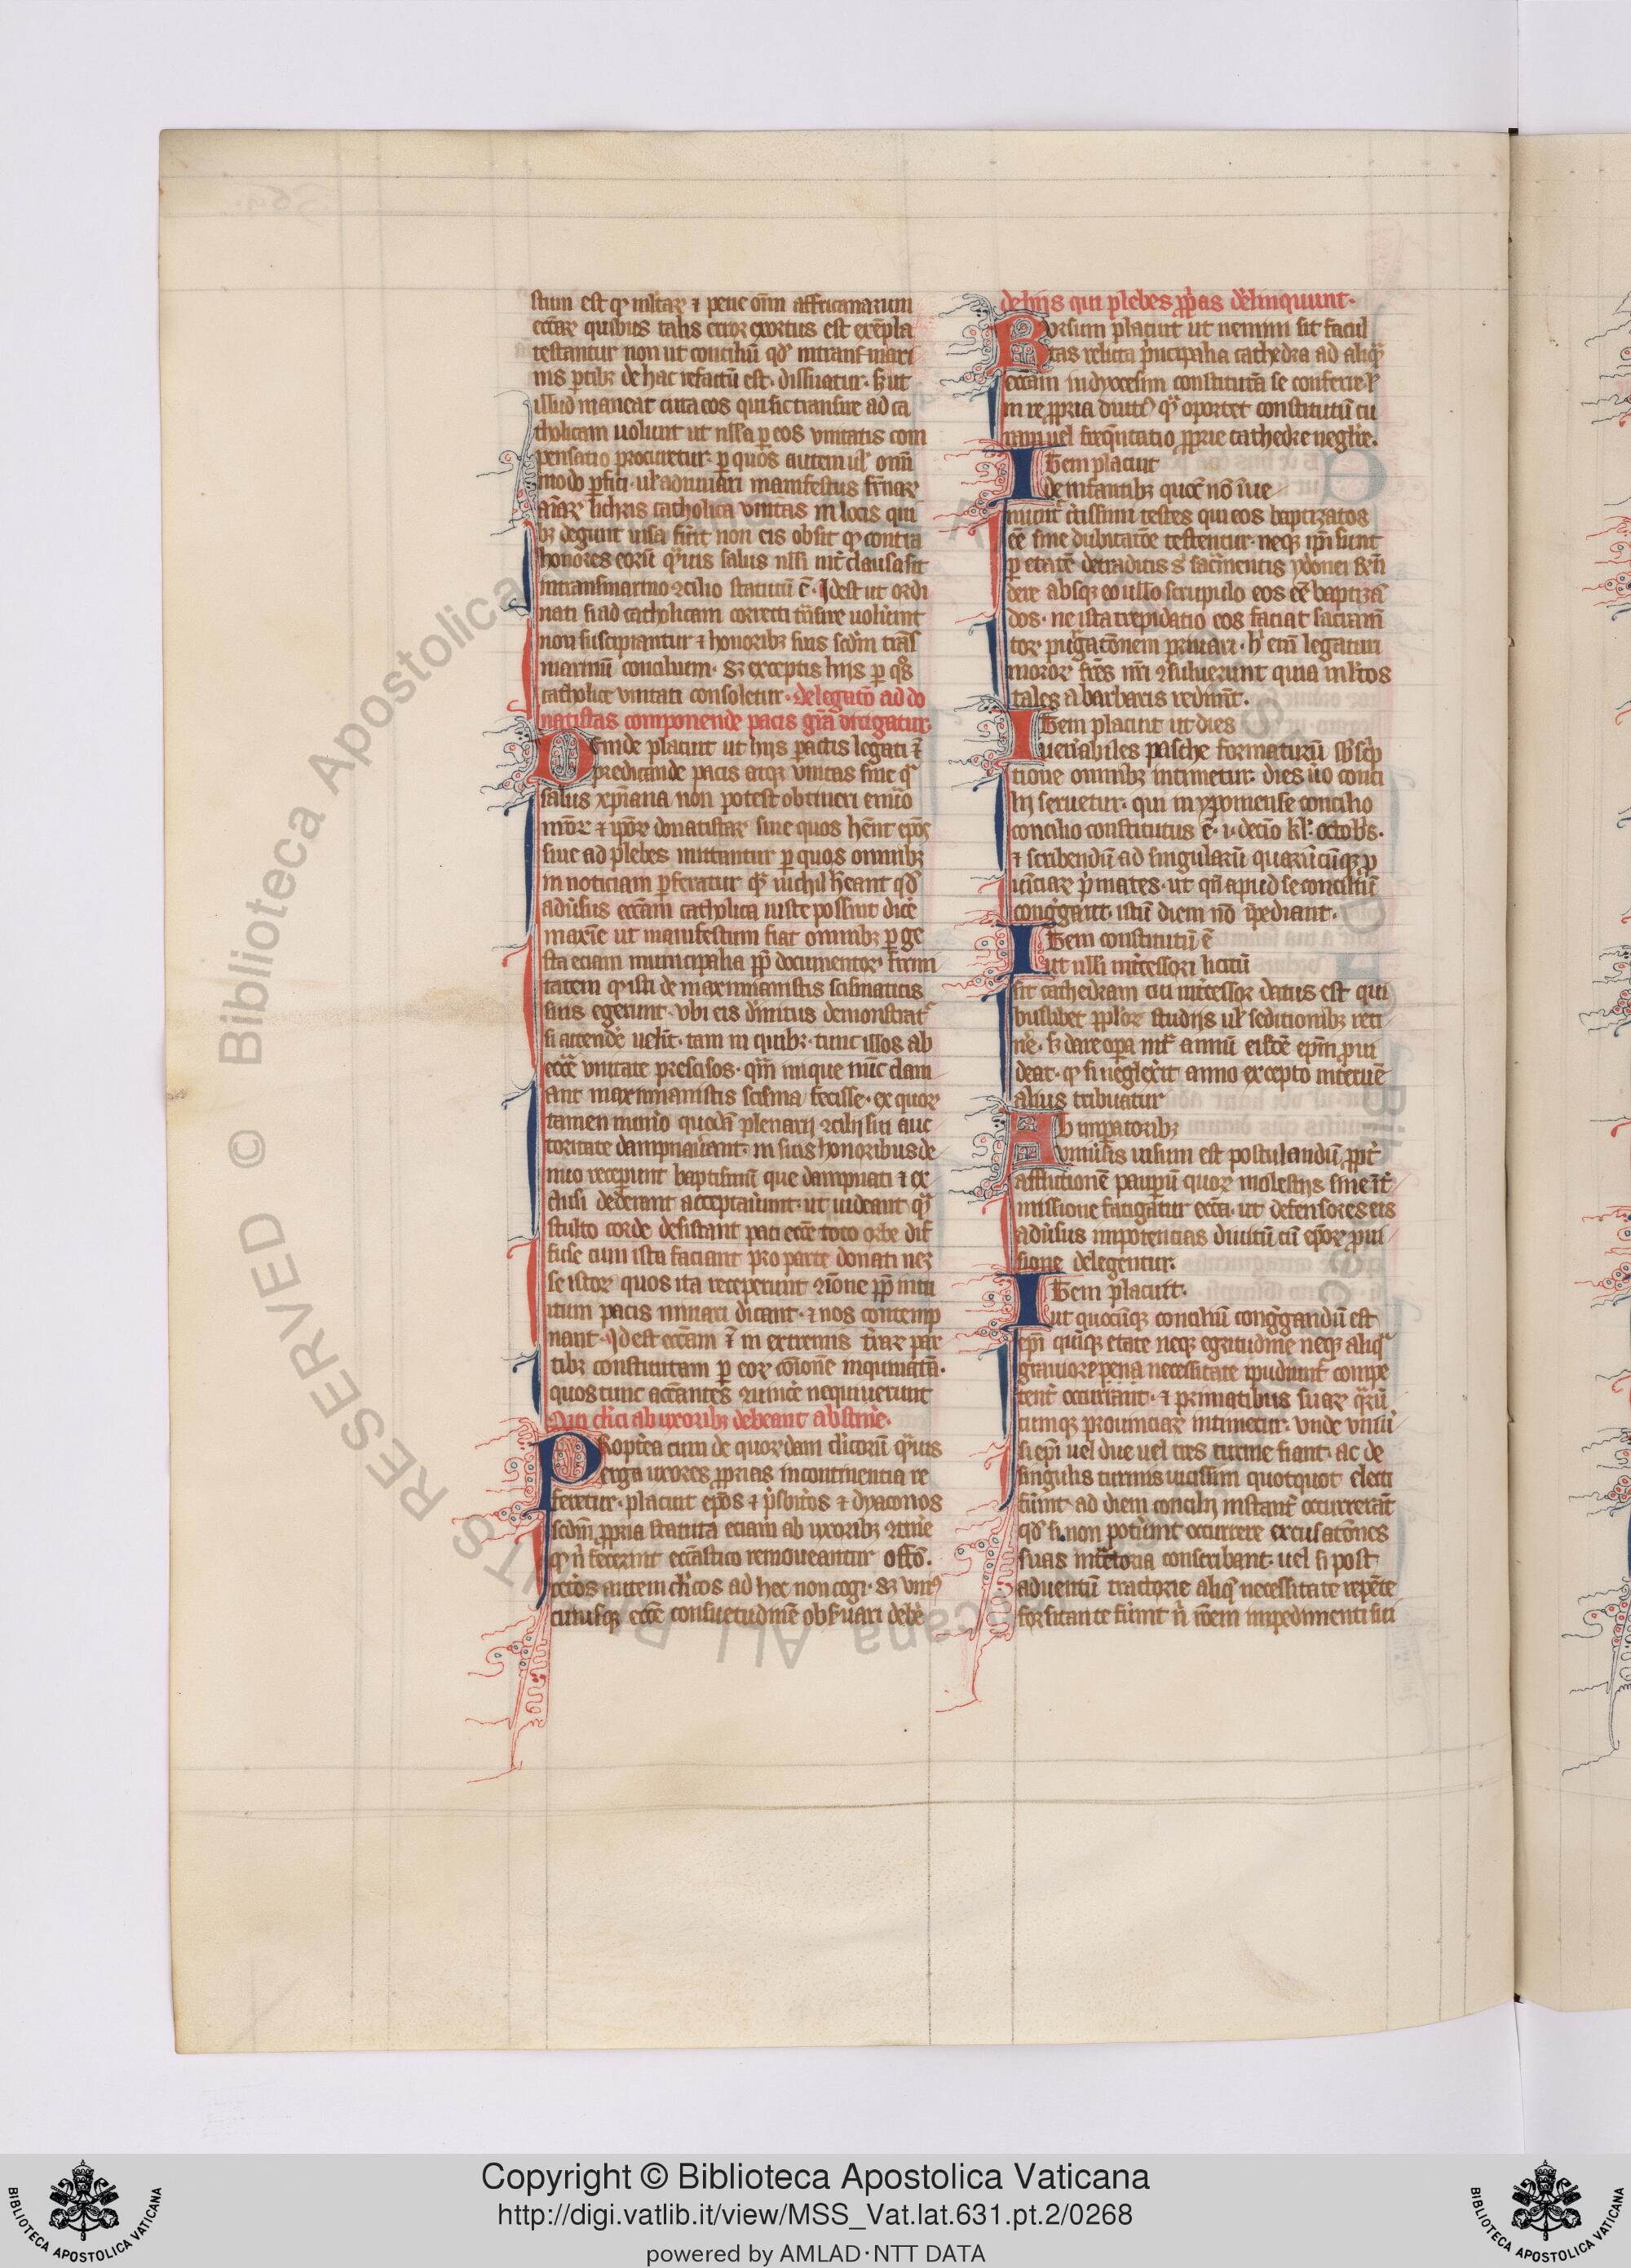 stum est qͥ multaꝝ ⁊ pene oīm affricanarum
eccͣꝝ quibus talis error exortus est exēpla
testantur non ut conciliū qd̓ in transmari
nis ꝑtibꝫ de hac re factū est. dissuatur. sꝫ ut
illud maneat circa eos qui sic transire ad ca
tholicam uolunt ut nulla ꝑ eos vnitatis com
pensatio procuretur. ꝑ quos autem ul̓ omī
modo ꝑfici. ul̓ adiuuari manifestus fr̄naꝝ
aīaꝝ lucris catholica vnitas in locis qui
bꝫ degunt uisa fuerit non eis obsit qͥ contra
honores eorū quis salus nulli int̓clausa sit
in transmarino ꝯcilio statutū ē. Idest ut ordi
nati si ad catholicam correcti trāsire uoluerint
non suscipiantur ⁊ honoribꝫ suis scd̓m trās
marinū concilium. sꝫ exceptis hijs ꝑ qͦs
catholice vnitati consoletur. de legatō ad do
natistas componende pacis grā dirigatur.
Deinde placuit ut hijs ꝑactis legati ē
predicande pacis atqꝫ vnitas sine qͣ
salus xp̄iana non potest obtineri e numero
nr̄oꝝ ⁊ ipōꝝ donatistaꝝ siue quos hēnt ep̄os
siue ad plebes mittantur ꝑ quos omnibꝫ
in noticiam ꝑferatur qͣ nichil hēant qd̓
aduersus ecc̄am catholicā iuste possint dicere
maxīe ut manifestum fiat omnibꝫ ꝑ ge
sta etiam municipalia ꝓp̄ documentoꝝ firmi
tatem qͥ isti de maximianistis scismaticis
suis egerunt. vbi eis diuinitus demonstratͬ
si attendere uelint. tam iniquibꝫ. tunc illos ab
ecc̄e vnitate prescisos. qm̄ inique nūc clam
ant maximianistis scisma fecisse. ex quoꝝ
tamen numero quosdā plenarij ꝯcilij sui auc
toritate dampnauerant. in suis honoribus de
nuo receperunt baptismū que dampnati ⁊ ex
clusi dederant acceptauerunt. ut uideant qͣ
stulto corde desistant paci ecc̄e toto orbe dif
fuse cum ista faciant pro parte donati neꝫ
se istoꝝ quos ita receperunt ꝯiōne ꝓp̄ intu
itum pacis minari dicant. ⁊ nos contemp
nant. Idest ecc̄am ē in extremis terraꝝ par
tibꝫ constitutam ꝑ eoꝝ cōione inquinatā.
quos tunc accusantes ꝯuincere nequiuerunt
Qui cl̓ici ab uxoribꝫ debeant abstinere.
Propterea cum de quorundam cl̓icorū quis
erga uxores ꝓprias incontinentia re
feretur. placuit ep̄os ⁊ pr̓sbitos ⁊ dyaconos
scd̓m ꝓpria statuta etiam ab uxoribꝫ ꝯtinere
qͥ n̄ fecerint ecc̄astico remoueantur offō.
ceteros autem cl̓icos ad hec non cogi. sꝫ vnius
cuiusqꝫ ecc̄e consuetudinē obseruari debere
de hijs qui plebes ꝓprias derelinquunt.
Rursum placuit ut nemini sit facul
tas relicta principalia cathedra ad aliqͣ
ecc̄am in dyocesim constitutā se conferre ul̓
in re ꝓpria diutius qͣ oportet constitutū cu
ram uel frequentatio ꝓprie cathedre neglere.
Item placuit
de infantibꝫ quoc̄ nō īue
niunt̓ certissimi testes qui eos baptizatos
ēē sine dubitatōe testentur. neqꝫ ip̄i sunt
ꝑ etatē de traditis sͥ sacr̄mentis ydonei respōn
dere absqꝫ eo ullo scrupulo eos ēē baptizā
dos. ne ista trepidatio eos faciat sacram̄
toꝝ purgatōnem priuari. hͨ eīm legatiui
moroꝝ fr̄es nr̄i ꝯsuluerunt quia multos
tales a barbaris redimūt.
Item placuit ut dies
uen̓abiles pasche formatarū sb̓scͥp
tione omnibꝫ intimetur. dies uo conci
lij seruetur. qui in yponense concilio
concilio constitutus ē. v. decīo kl̓. octobris.
⁊ scribendū ad singularū quarūcūqꝫ ꝓ
uīciaꝝ pͥmates. ut qn̄ apud se conciliū
congͣgant. istū diem nō īpediant.
Item constitutū ē
ut nulli intercessori licitū
sit cathedram cui intercessor datus est qui
buslibet ppl̓oꝝ studijs ul̓ seditionibꝫ reti
nere. sꝫ dare opā int̓ annū eisdē ep̄m prouī
deat. qͥ si neglexerit anno excepto interuē
alius tribuatur
Ab impatoribꝫ
vniuersis uisum est postulandū ꝓpt̓
afflictionē pauperū quoꝝ molestijs sine īt̓
missione fatigatur ecc̄a. ut defensores eis
aduersus inpotencias diuitū cū ep̄oꝝ proui
sione delegentur.
Item placuit.
ut quocūqꝫ conciliū congͣgandū est
ep̄i quīqꝫ etate neqꝫ egritudine neqꝫ aliqͣ
grauiore pena necessitate īpediūnt̓ compe
tenter occurrant. ⁊ primatibus suaꝝ quarū
cumqꝫ prouinciaꝝ intimetur. vnde vniuersi
si ep̄i uel due uel tres turme fiant. ac de
singulis turmis uicissim quotquot electi
fuerint ad diem concilij instant̓ occurrerāt
qd̓ si non potuerint occurrere excusatōnes
suas in tractoria conscribant. uel si post
aduentū tractorie aliqͣ necessitate repente
forsitan te fuerint n̄ rōem impedimenti sui
Copyright © Biblioteca Apostolica Vaticana
http://digi.vatlib.it/view/MSS_Vat.lat.631.pt.2/0268
powered by AMLAD·NTT DATA